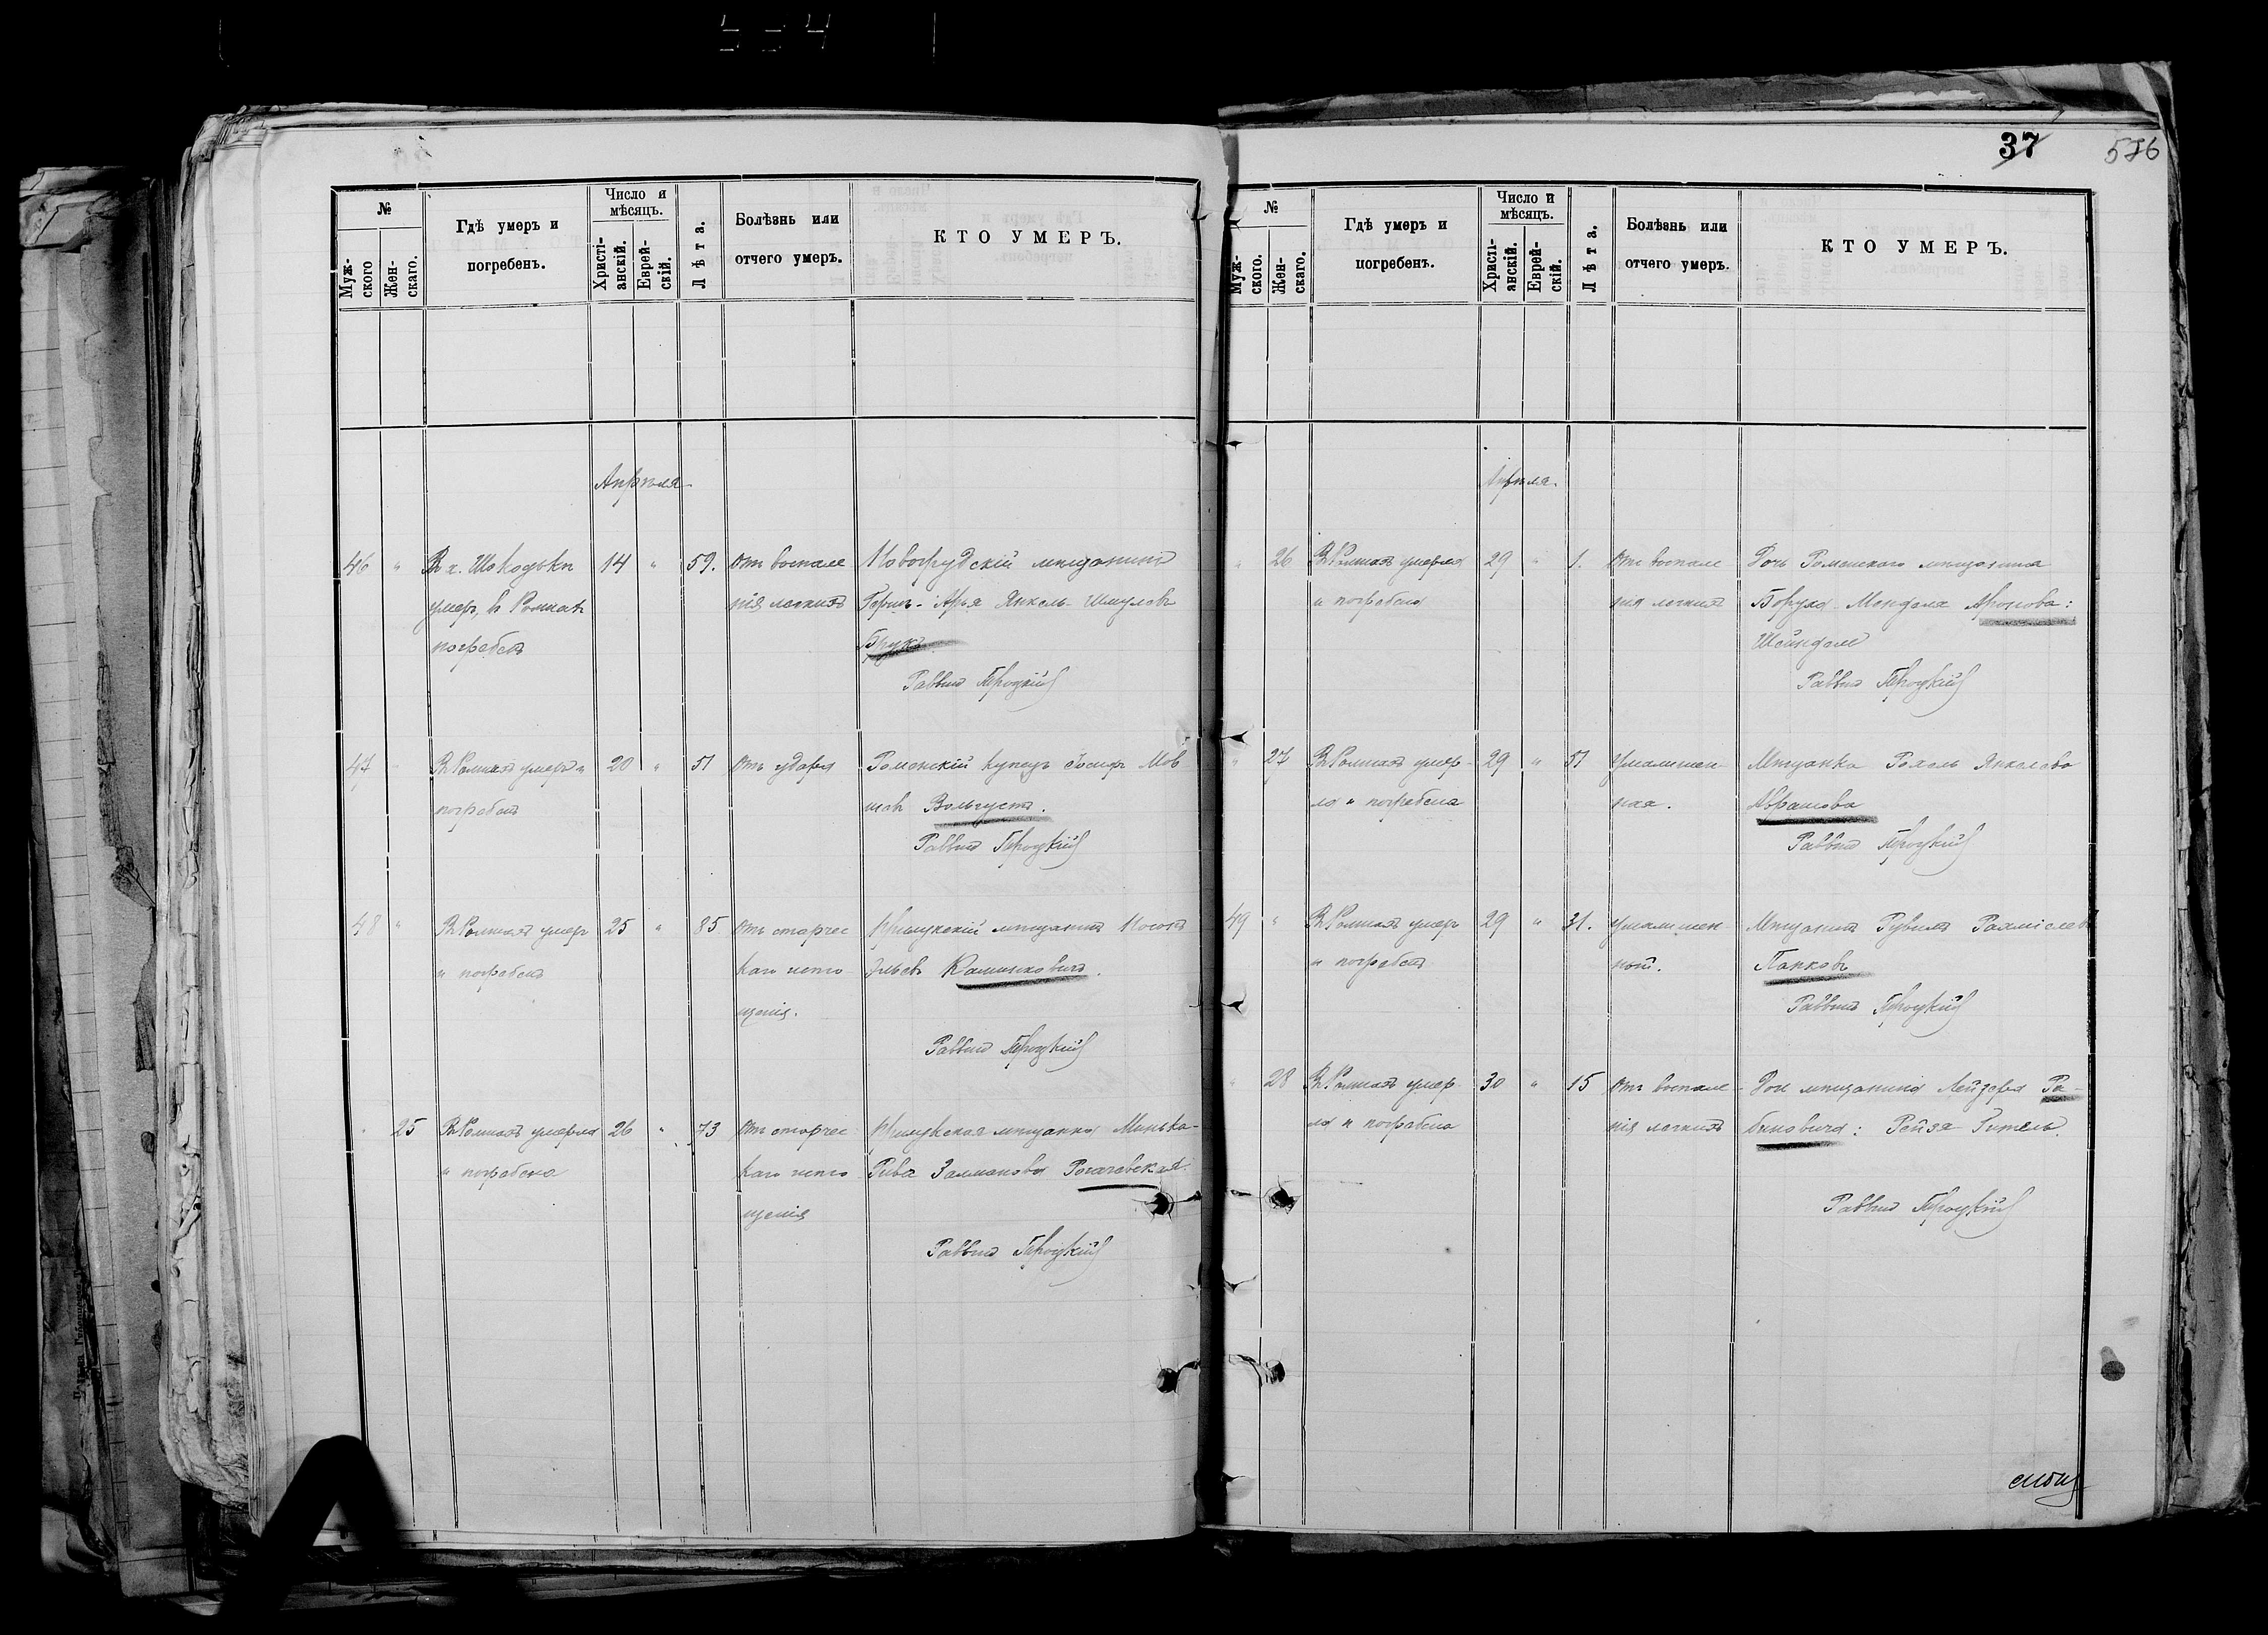 37 576
№
Муж-
ского
Жен-
скаго.
Гдѣ умеръ и
погребенъ.
Число и
мѣсяцъ.
Христі-
анскій.
Еврей-
скій.
Лѣта.
Болѣзнь или
отчего умеръ.
КТО УМЕРЪ.
Апрѣля
46 " Въ х. умеръ, въ Ромнахъ погребенъ
14 " 59.
Отъ воспале
нія легкихъ
мѣщанинъ
Гершъ-Арья Янкель-Шмулевъ
Брукъ
Раввинъ
47
Въ Ромнахъ умеръ и
погребенъ
20 " 51
Отъ удара
Роменскій купецъ Іосифъ Мов
шевъ Вольгустъ.
Раввинъ
48 "
Въ Ромнахъ умеръ
и погребенъ
25 " 85
Отъ старчес
каго исто
щенія.
Прилукскій мѣщанинъ Носонъ
Раввинъ
25
Въ Ромнахъ умерла
и погребена
26 " 73
Отъ старчес
каго исто
щенія
Прилукская мѣщанка Минька-
Рива Залманова Рогачевская.
Раввинъ
№
Муж-
ского.
Жен-
скаго.
Гдѣ умеръ и
погребенъ.
Число и
мѣсяцъ.
Христі-
анскій.
Еврей-
скій.
Лѣта.
Болѣзнь или
отчего умеръ.
КТО УМЕРЪ.
Апрѣля.
" 26
Въ Ромнахъ умерла
и погребена
29 " 1.
Отъ воспале
нія легкихъ
Дочь Роменскаго мѣщанина
Боруха-Менделя Аронова:
Шейндель
Раввинъ
" 27
Въ Ромнахъ умер-
ла и погребена
29 " 51
Умалишен-
ная.
Мѣщанка Рохель Янкелева
Абрамова
Раввинъ
49 "
Въ Ромнахъ умеръ
и погребенъ
29 " 31.
Умалишен-
ный.
Мѣщанинъ Рувинъ
Папковъ
Раввинъ
" 28
Въ Ромнахъ умер-
ла и погребена
30 " 15
Отъ воспале-
нія легкихъ
Дочь мѣщанина Лейзера Ра-
биновича: Рейзя Гитель.
Раввинъ